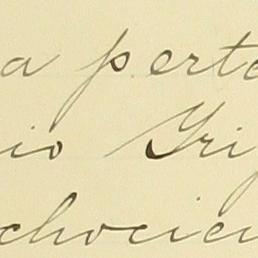 a perte
io Gri
chocien